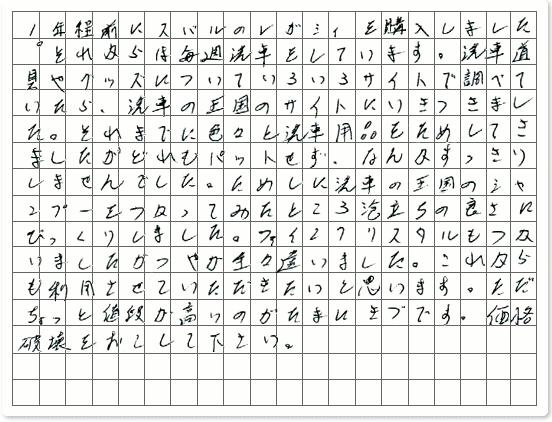 1年程前にスバルのレガシィを購入しました
。それからは毎週洗車をしています。洗車道
具やグッズについていろいろサイトで調べて
いたら、洗車の王国のサイトにいきつきまし
た。それまでに色々と洗車用品をためしてき
ましたがどれもパットせず、なんかすっきり
しませんでした。ためしに洗車の王国のシャ
ンプーをつかってみたところ泡立ちの良さに
びっくりしました。ファインクリスタルもつか
いましたがつやが全々違いました。これから
も利用させていただきたいと思います。ただ
ちょっと値段が高いのがたまにきづです。価格
破壊をおこして下さい。